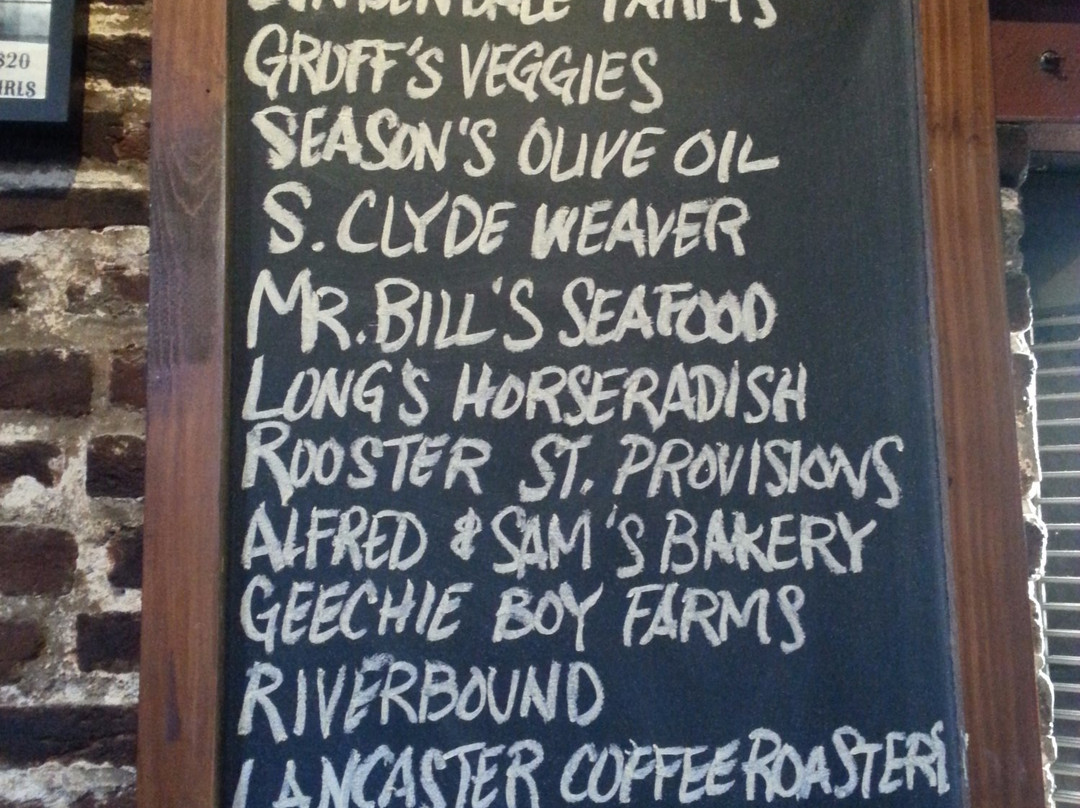 $20
IRLS
FARMS
GRUFF'S VEGGIES
SEASON'S OLIVE OIL
S. CLYDE WEAVER
MR. BILL'S SEAFOOD
LONG'S HORSERADISH
ROOSTER ST. PROVISIONS
ALFRED & SAM'S BAKERY
GEECHIE BOY FARMS
RIVERBOUND
LANCASTER COFFEE ROASTERS